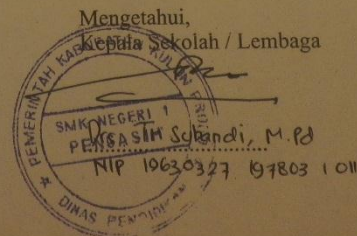 Mengetahui,
Kepala Sekolah / Lembaga
PEMERINTAH KABUPATEN KULON PROGO
SMK NEGERI 1
PENGASIH
DINAS PENDIDIKAN
Drs. Tri Subandi, M.Pd
NIP 19630327 197803 1 011